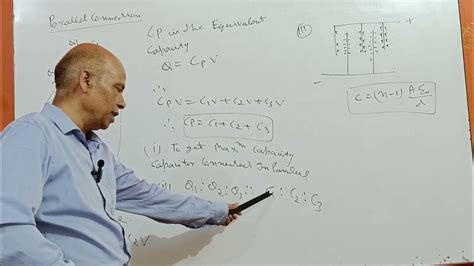 Parallel Connection
CP is the Equivalent
Capacity
Q = CP V
∴ CP V = C1V + C2V + C3V
∴ CP = C1 + C2 + C3
(i) To get Maxm Capacity
Capacitor Connected In Parallel
(ii) Q1 : Q2 : Q3 :: : C2 : C3
(iii)
+
C = (n-1) A ε0 / d
2V